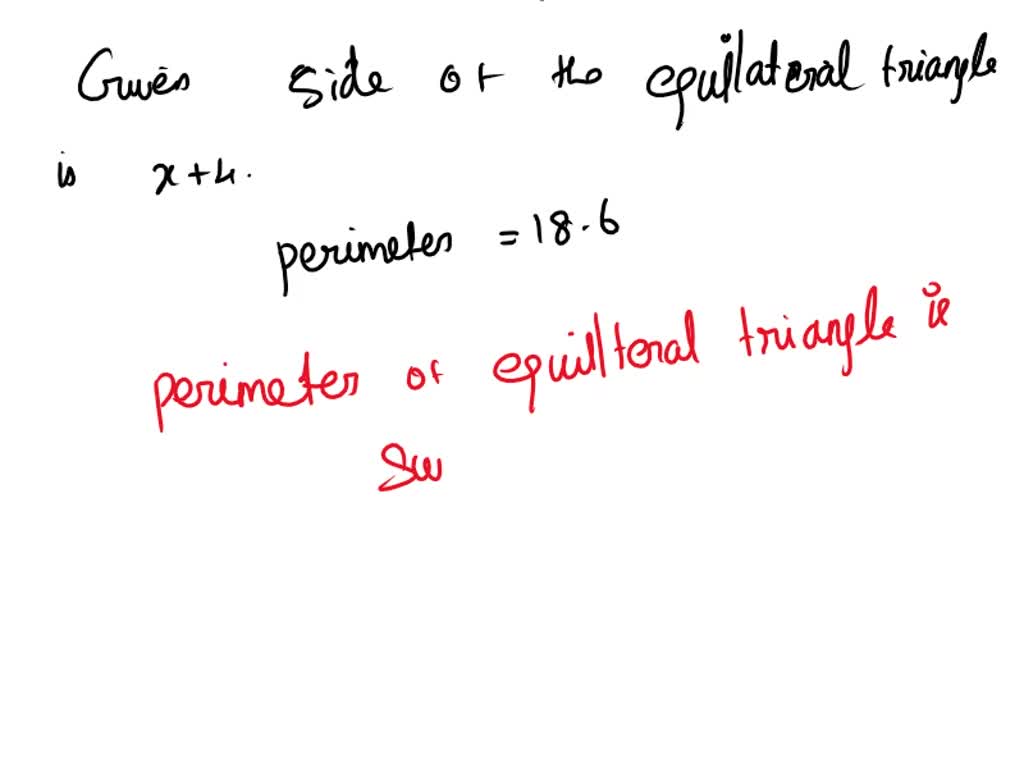 Given side of the equillateral triangle
is x+4.
perimeter = 18.6
perimeter of equillteral triangle is
Su